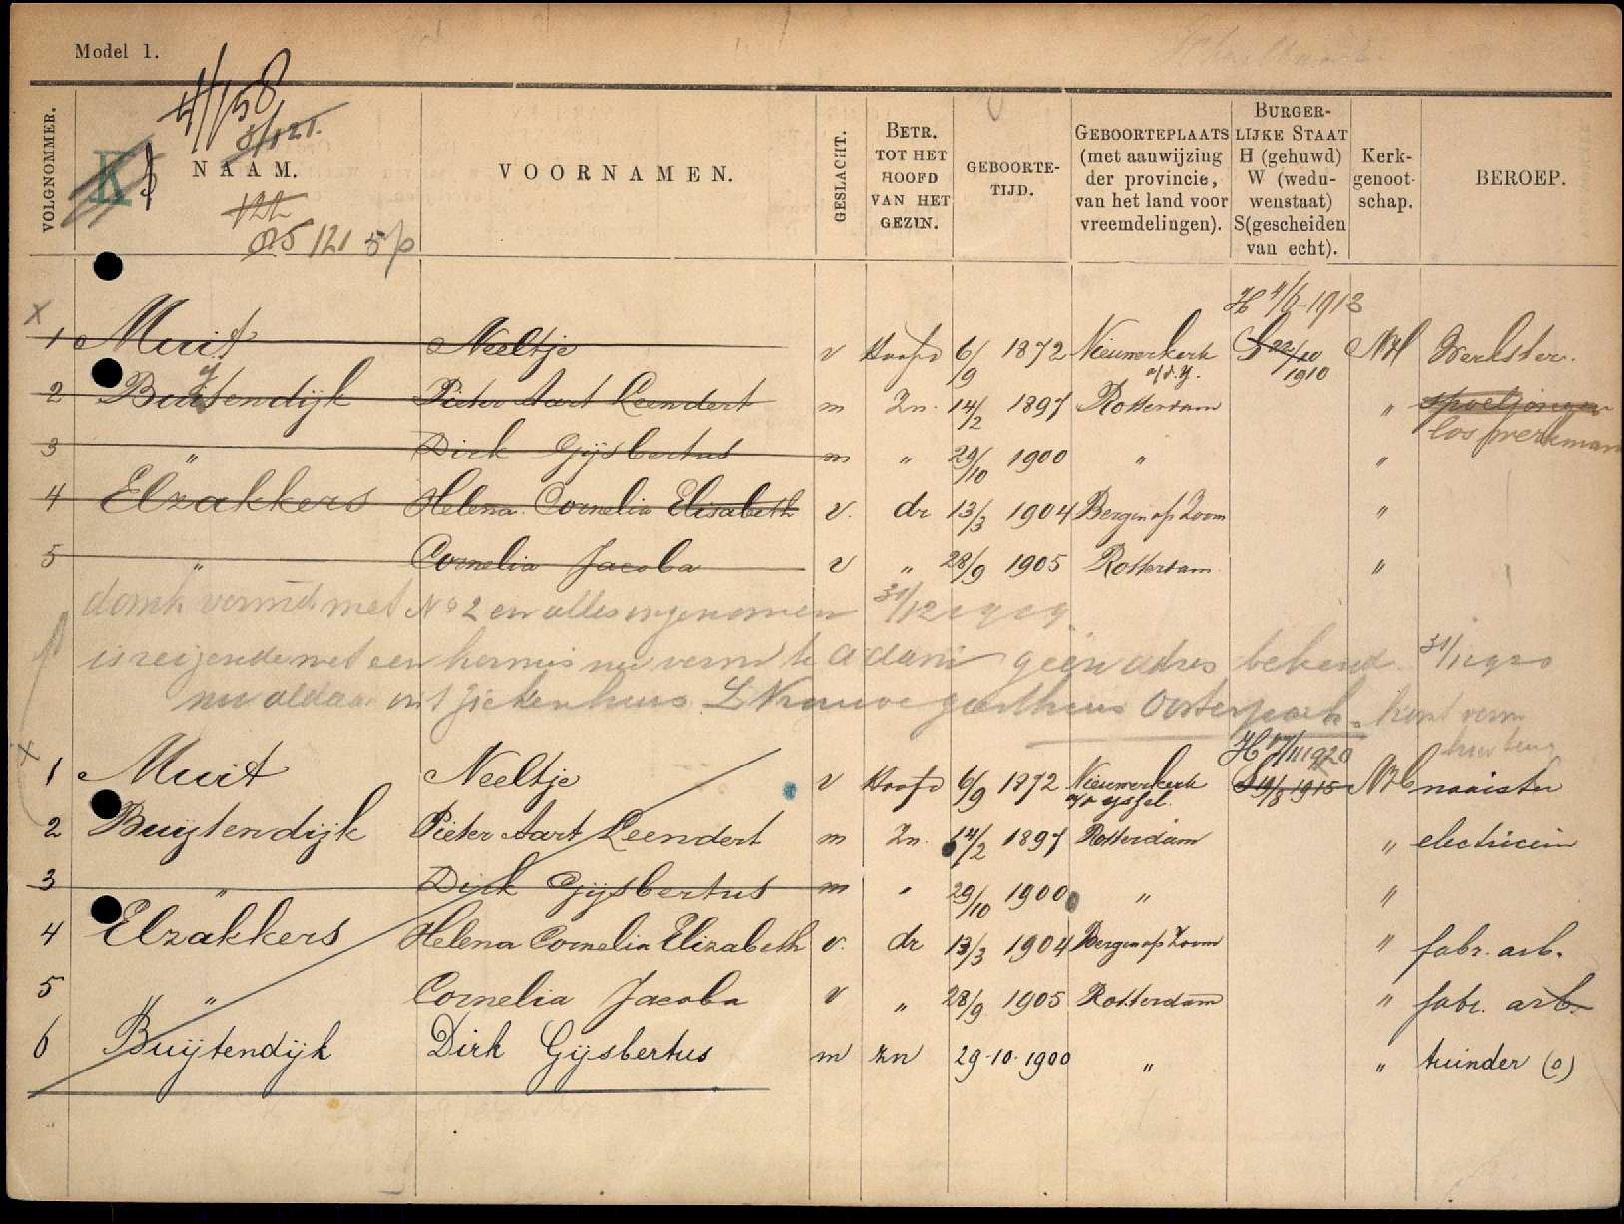 Model 1.
4/158
8/121.
K
122
125 121 5/p
VOLGNOMMER.
NAAM.
VOORNAMEN.
GESLACHT.
BETR. TOT HET HOOFD VAN HET GEZIN.
GEBOORTE-TIJD.
GEBOORTEPLAATS (met aanwijzing der provincie, van het land voor vreemdelingen).
BURGER-LIJKE STAAT H (gehuwd) W (wedu-wenstaat) S(gescheiden van echt).
Kerk-genoot-schap.
BEROEP.
1913
1 Muit Neeltje v Hoofd 6/9 1872 Nieuwerkerk a/d. Y. S 22/10 1910 NH Werkster.
2 Buitendijk Pieter Aart Leendert m Zn. 14/2 1897 Rotterdam " spoeljongen
los werkman
3 " Dirk Gijsbertus m " 29/10 1900 " "
4 Elzakkers Helena Cornelia Elisabeth v. dr 13/3 1904 Bergen op Zoom "
5 " Cornelia Jacoba v " 28/9 1905 Rotterdam "
met No 2 en alles 31/12 1919.
is reizende met een kermis nu te Adam geen adres bekend 31/1 1920
nu aldaar in 't Ziekenhuis Vrouwe gasthuis Oosterpark
H 17/11 1920
1 Muit Neeltje v Hoofd 6/9 1872 Nieuwerkerk a/d yssel. S 19/8 1915 NH naaister
2 Buijtendijk Pieter Aart Leendert m Zn. 14/2 1897 Rotterdam " electricien
3 " Dirk Gijsbertus m " 29/10 1900 " "
4 Elzakkers Helena Cornelia Elizabeth v. dr 13/3 1904 Bergen op Zoom " fabr. arb.
5 " Cornelia Jacoba v " 28/9 1905 Rotterdam " fabr. arb.
6 Buijtendijk Dirk Gijsbertus m zn 29-10-1900 " " tuinder (o)